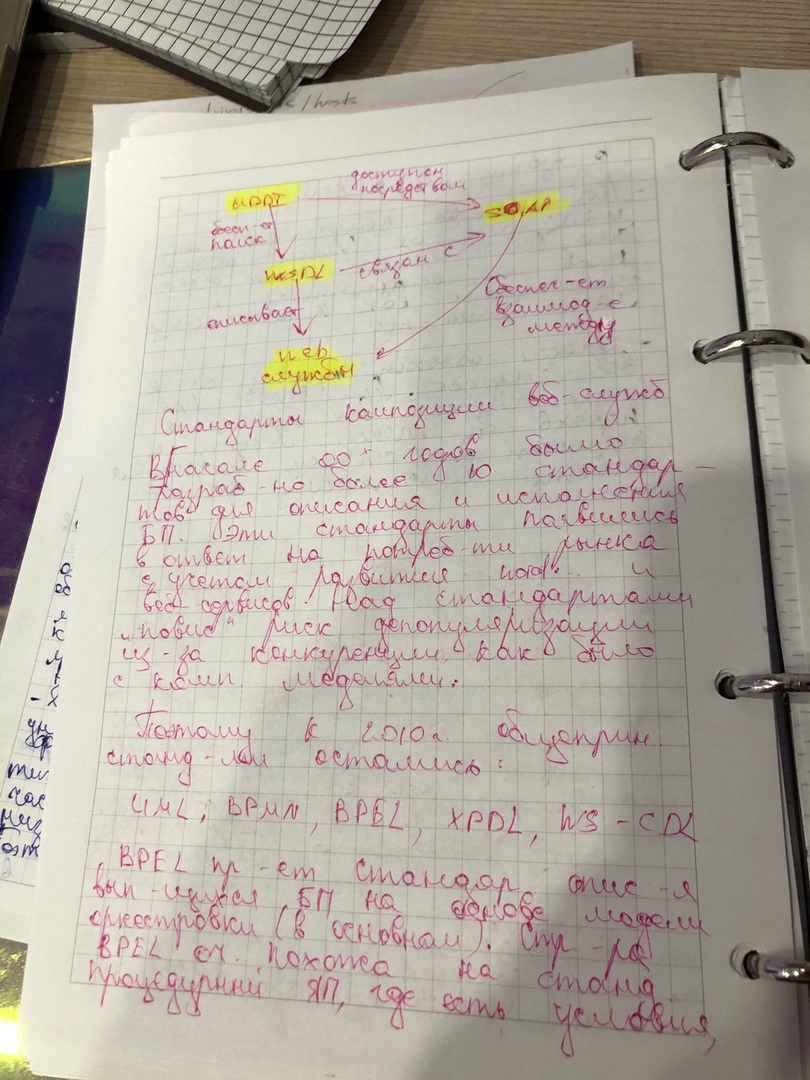 UDDI
доступен
посредством
SOAP
обесп-ет
поиск
WSDL
связан с
Обеспеч-ет
взаимод-е
между
описывает
web
службы
Стандарты композиции веб-служб
В начале 00х годов было
разраб-но более 10 стандар-
тов для описания и исполнения
БП. Эти стандарты появились
в ответ на потреб-ти рынка
с учетом развития и
веб сервисов. Над стандартами
"повис" риск депопуляризации
из-за конкуренции как было
с комп. моделями.
Поэтому к 2010 г. общеприн.
станд-ми остались:
UML, BPMN, BPEL, XPDL, WS-CDL
BPEL пр-ет стандар опис-я
вып-щихся БП на основе модели
оркестровки (в основном). Стр-ра
BPEL оч. похожа на станд
процедурный ЯП, где есть условия,